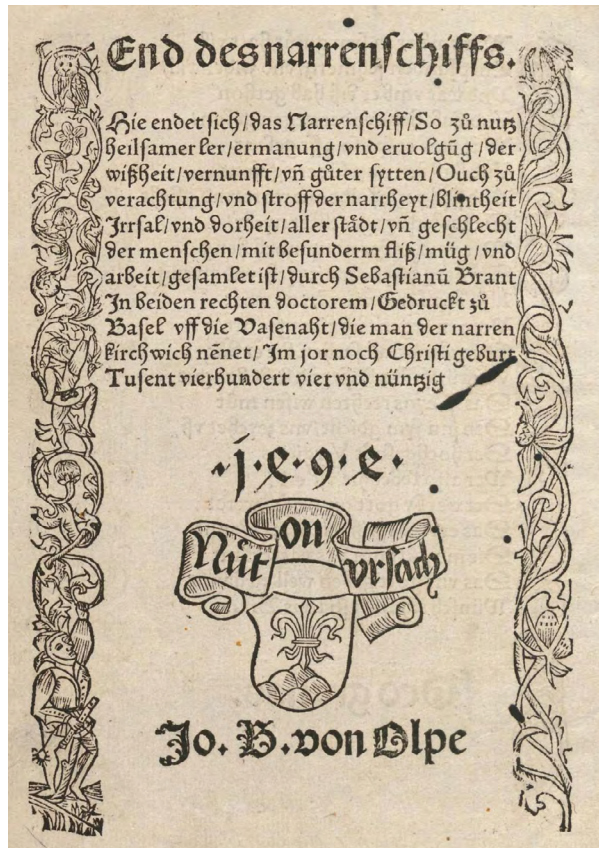 End des narrenschiffs.
Hie endet sich/das Narrenschiff/So zů nutz
heilsamer ler/ermanung/vnd eruolgūg/der
wißheit/vernunfft/vn̄ gůter sytten/Ouch zů
verachtung/vnd stroff der narrheyt/blintheit
Jrrsal/vnd dorheit/aller stådt/vn̄ geschlecht
der menschen/mit besunderm fliß/můg/vnd
arbeit/gesamlet ist/durch Sebastianū Brant
Jn beiden rechten doctorem/Gedruckt zů
Basel vff die Vasenaht/die man der narren
kirchwich nēnet/Jm jor noch Christi geburt
Tusent vierhundert vier vnd nüntzig
.j.e.9.e.
Nüt on vrsach
Jo. B. von Olpe